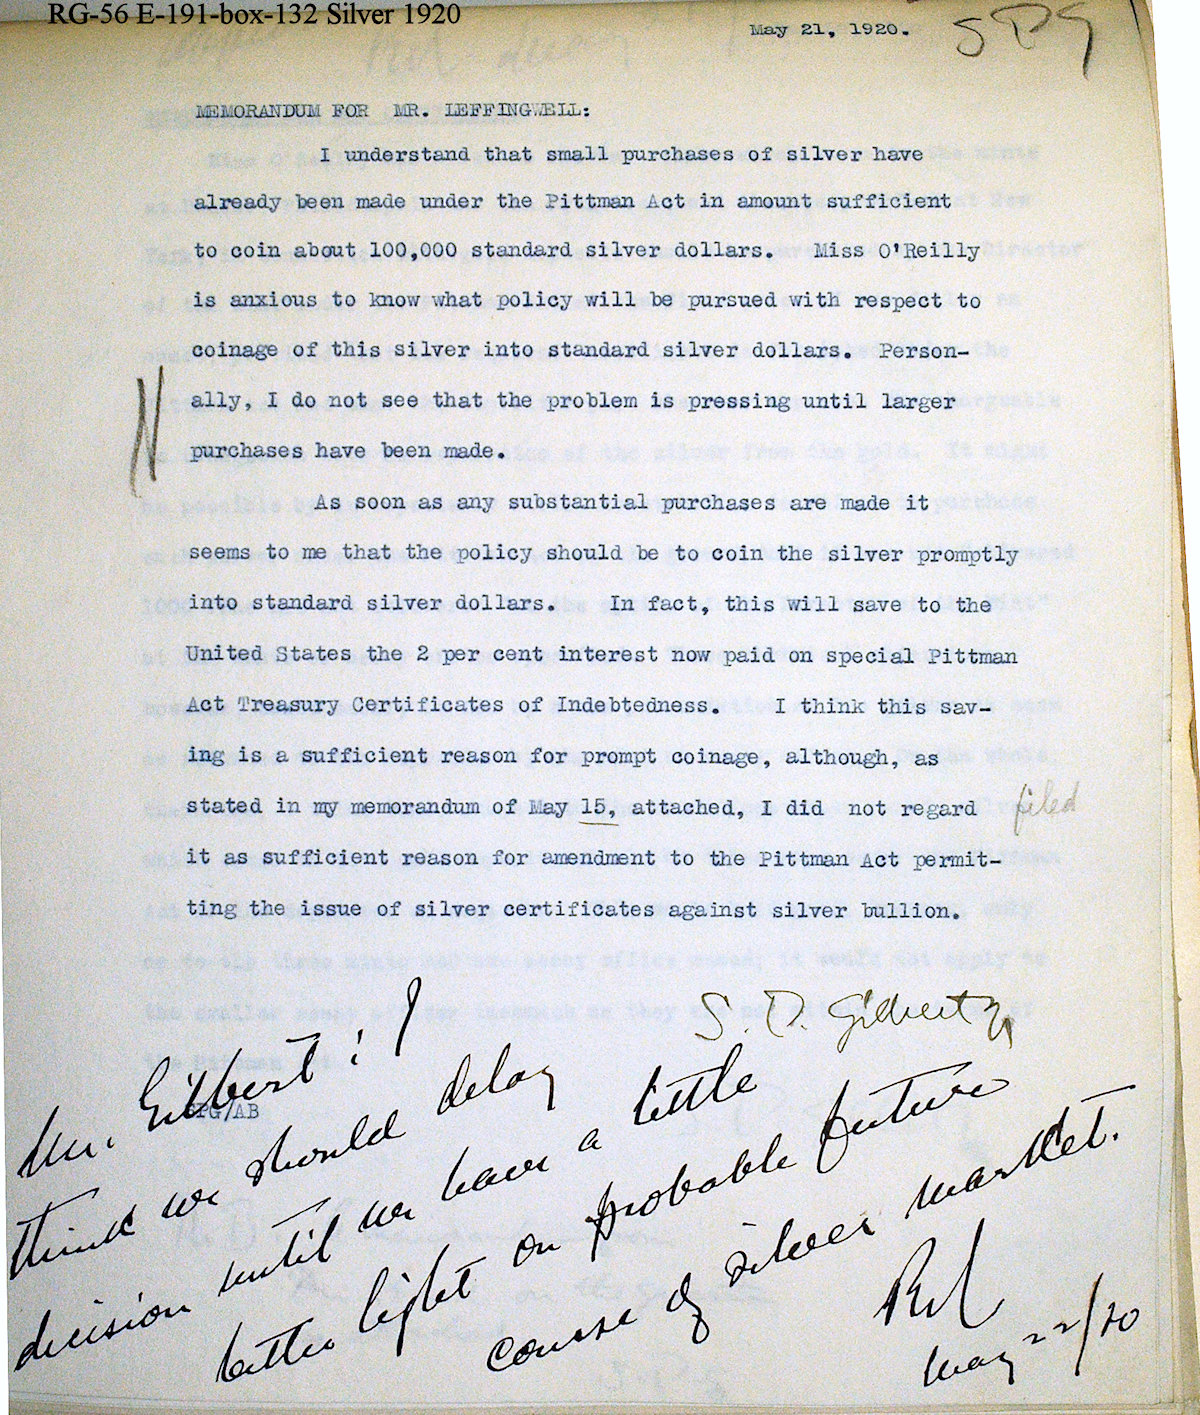 RG-56 E-191-box-132 Silver 1920
May 21, 1920.
SPG
MEMORANDUM FOR MR. LEFFINGWELL:
I understand that small purchases of silver have
already been made under the Pittman Act in amount sufficient
to coin about 100,000 standard silver dollars. Miss O'Reilly
is anxious to know what policy will be pursued with respect to
coinage of this silver into standard silver dollars. Person-
ally, I do not see that the problem is pressing until larger
purchases have been made.
As soon as any substantial purchases are made it
seems to me that the policy should be to coin the silver promptly
into standard silver dollars. In fact, this will save to the
United States the 2 per cent interest now paid on special Pittman
Act Treasury Certificates of Indebtedness. I think this sav-
ing is a sufficient reason for prompt coinage, although, as
stated in my memorandum of May 15, attached, I did not regard
filed
it as sufficient reason for amendment to the Pittman Act permit-
ting the issue of silver certificates against silver bullion.
S. P. Gilbert Jr
SPG/AB
Mr. Gilbert: I
think we should delay
decision until we have a little
better light on probable future
course of silver market.
RCL
May 22/20